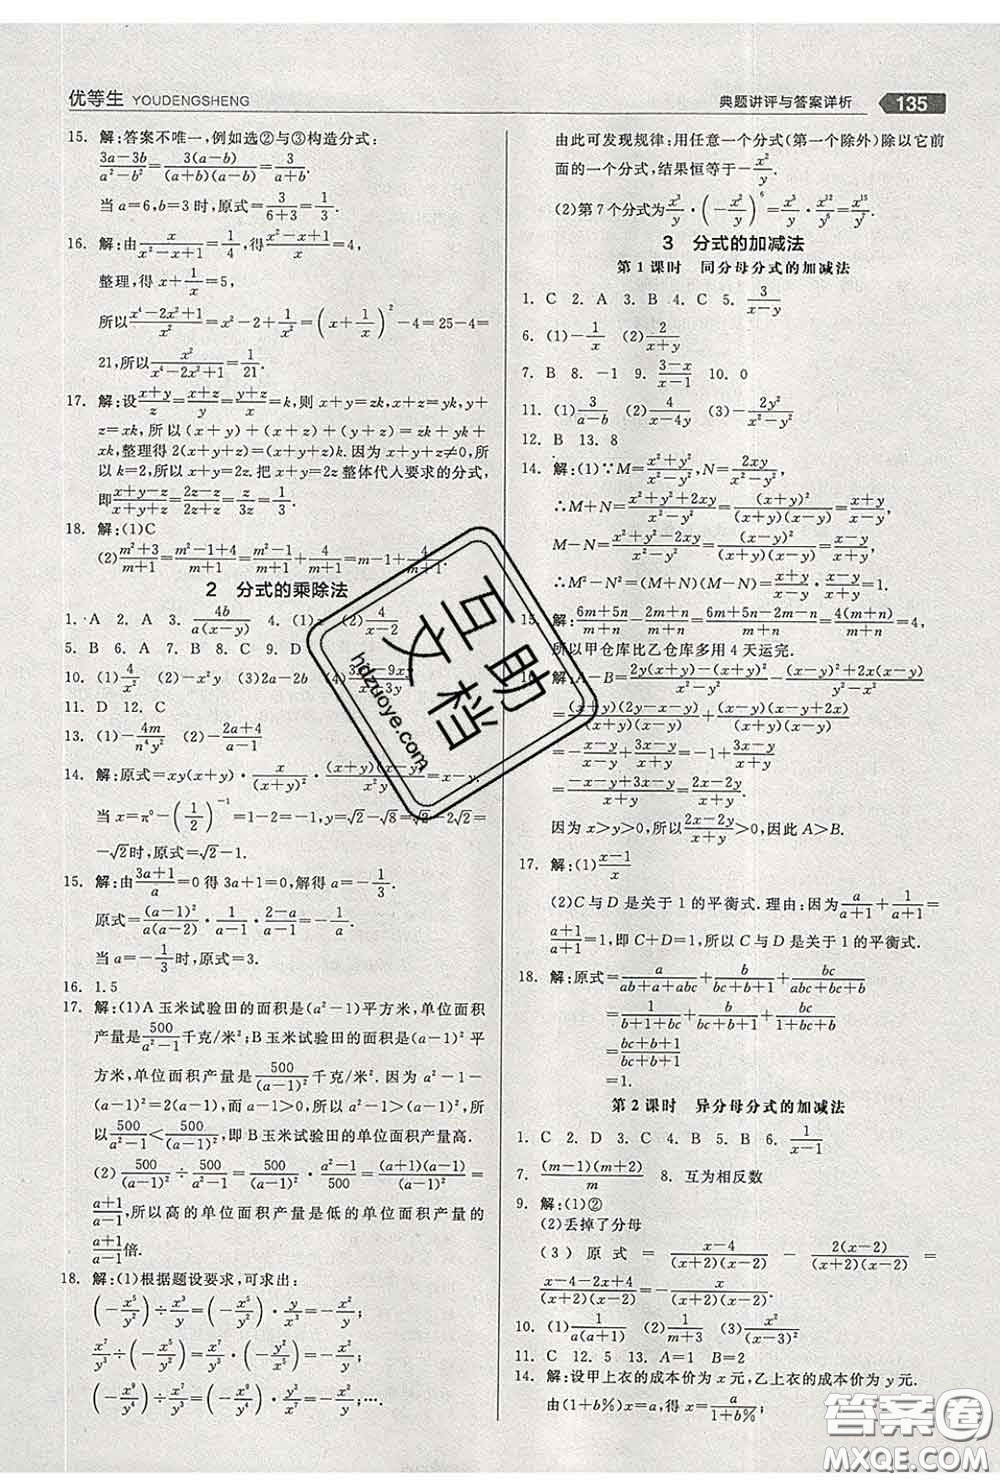 优等生 YOUDENGSHENG
典题讲评与答案详析 135
15. 解:答案不唯一,例如选②与③构造分式:
(3a-3b)/(a²-b²)=3(a-b)/((a+b)(a-b))=3/(a+b).
当a=6,b=3时,原式=3/(6+3)=1/3.
16. 解:由x/(x²-x+1)=1/4,得(x²-x+1)/x=4,
整理,得x+1/x=5,
所以(x⁴-2x²+1)/x²=x²-2+1/x²=(x+1/x)²-4=25-4=
21,所以x²/(x⁴-2x²+1)=1/21.
17. 解:设(x+y)/z=(x+z)/y=(y+z)/x=k,则x+y=zk,x+z=yk,y+
z=xk,所以(x+y)+(x+z)+(y+z)=zk+yk+
xk,整理得2(x+y+z)=(x+y+z)k.因为x+y+z≠0,所
以k=2,所以x+y=2z.把x+y=2z整体代入要求的分式,
即(x+y-z)/(x+y+z)=(2z-z)/(2z+z)=z/3z=1/3.
18. 解:(1)C
(2)(m²+3)/(m+1)=(m²-1+4)/(m+1)=(m²-1)/(m+1)+4/(m+1)=m-1+4/(m+1).
2 分式的乘除法
1. A 2. A 3. 4b/(a(x-y)) 4. (1) (2)
5. B 6. A 7. A 8. B 9. D
10. (1)4/x² (2)-x²y (3)2a-2b
11. D 12. C
13. (1)-4m/(n⁴y²) (2)-(2a+4)/(a-1)
14. 解:原式=xy(x+y)·x/(x+y)²·(x+y)(x-y)/=x-y.
当x=π⁰-(1/2)⁻¹=1-2=-1,y=√2-√8=√2-2√2=
-√2时,原式=√2-1.
15. 解:由(3a+1)/a=0得3a+1=0,解得a=-1/3.
原式=(a-1)²/(a(a-2))·1/(a-1)·(2-a)/(a-1)=-1/a.
当a=-1/3时,原式=3.
16. 1.5
17. 解:(1)A玉米试验田的面积是(a²-1)平方米,单位面积
产量是500/(a²-1)千克/米²;B玉米试验田的面积是(a-1)²平
方米,单位面积产量是500/(a-1)²千克/米².因为a²-1-
(a-1)²=2(a-1),而a-1>0,所以a²-1>(a-1)²,所
以500/(a²-1)<500/(a-1)²,即B玉米试验田的单位面积产量高.
(2)500/(a-1)²÷500/(a²-1)=500/(a-1)²·(a²-1)/500=(a+1)(a-1)/(a-1)²=
(a+1)/(a-1),所以高的单位面积产量是低的单位面积产量的
(a+1)/(a-1)倍.
18. 解:(1)根据题设要求,可求出:
(-x⁵/y²)÷x³/y=(-x⁵/y²)·y/x³=-x²/y;
x⁷/y³÷(-x⁵/y²)=x⁷/y³·(-y²/x⁵)=-x²/y;
(-x⁹/y⁴)÷x⁷/y³=(-x⁹/y⁴)·y³/x⁷=-x²/y;….
由此可发现规律:用任意一个分式(第一个除外)除以它前
面的一个分式,结果恒等于-x²/y.
(2)第7个分式为x³/y·(-x²/y)⁶=x³/y·x¹²/y⁶=x¹⁵/y⁷.
3 分式的加减法
第1课时 同分母分式的加减法
1. C 2. A 3. B 4. C 5. 3/(x-y)
6. (1)-1/x (2)2/(x+y)
7. B 8. -1 9. (3-x)/(x-1) 10. 0
11. (1)3/(a-b) (2)4/(x-4y) (3)-2y²/(x²-y²)
12. B 13. 8
14. 解:(1)∵M=(x²+y²)/(x²-y²),N=2xy/(x²-y²),
∴M+N=(x²+y²+2xy)/(x²-y²)=(x+y)²/((x+y)(x-y))=(x+y)/(x-y),
M-N=(x²+y²-2xy)/(x²-y²)=(x-y)²/((x+y)(x-y))=(x-y)/(x+y).
∴M²-N²=(M+N)(M-N)=(x+y)/(x-y)·(x-y)/(x+y)=1.
15. 解:(6m+5n)/(m+n)-(2m+n)/(m+n)=(6m+5n-2m-n)/(m+n)=4(m+n)/(m+n)=4,
所以甲仓库比乙仓库多用4天运完.
16. 解:A-B=
=(x-y)/+(x-y)/(x+y)=-1+(x-y)/(x+y)
因为x>y>0,所以(2x-2y)/(x+y)>0,因此A>B.
17. 解:(1)(x-1)/x
(2)C与D是关于1的平衡式.理由:因为a/(a+1)+1/(a+1)=
(a+1)/(a+1)=1,即C+D=1,所以C与D是关于1的平衡式.
18. 解:原式=a/(abc+a+ab)+b/(bc+b+1)+bc/(abc+bc+b)=
1/(b+1+bc)+b/(bc+b+1)+bc/(1+bc+b)=
(bc+b+1)/(bc+b+1)
=1.
第2课时 异分母分式的加减法
1. C 2. D 3. D 4. B 5. B 6. 1/(x-1)
7. (m-1)(m+2)/m 8. 互为相反数
9. 解:(1)②
(2)丢掉了分母
(3)原式=(x-4)/((x+2)(x-2))-2(x-2)/((x+2)(x-2))=
(x-4-2x+4)/((x+2)(x-2))=-x/((x+2)(x-2)).
10. (1)1/(a(a+1)) (2)1/(m+3) (3)x²/(x-3)²
11. C 12. 5 13. A=1 B=2
14. 解:设甲上衣的成本价为x元,乙上衣的成本价为y元.
由(1+b%)x=a,得x=a/(1+b%);
互助文档
hdzuoye.com
答案圈
MXQE.COM